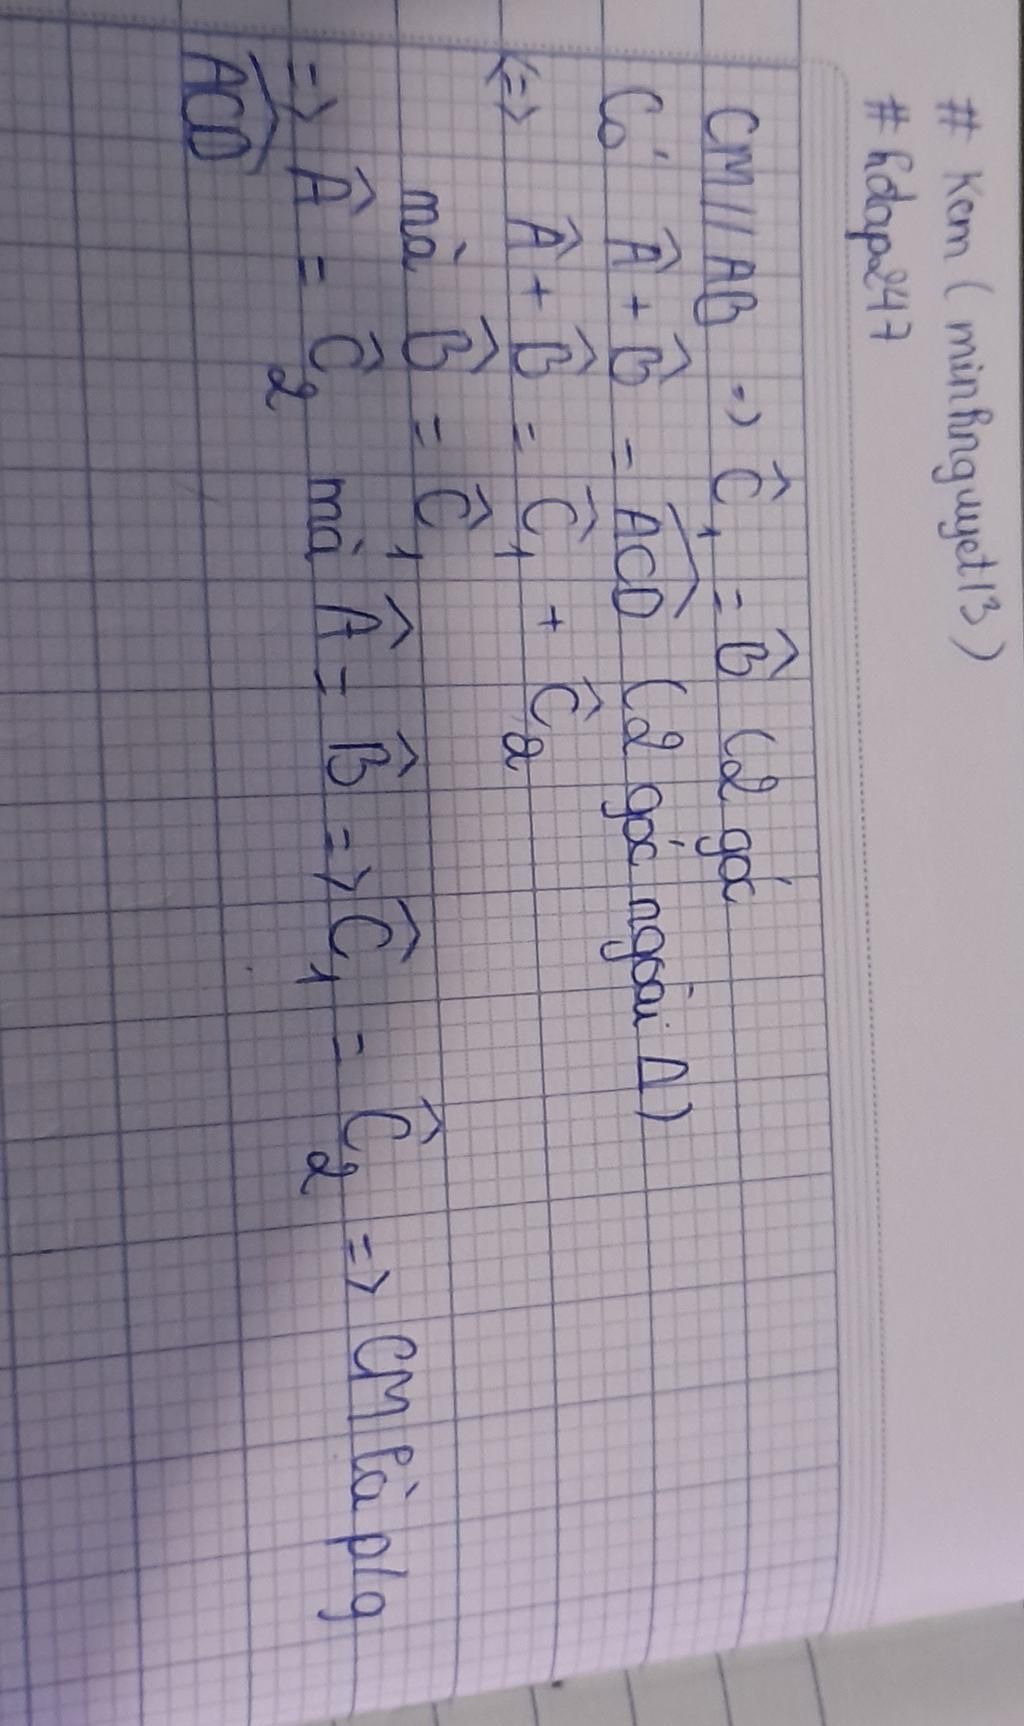 # Kem ( minhnguyet13 )
# hoidap247
CM // AB => Ĉ₁ = B̂ (2 góc
Có Â + B̂ = \widehat{ACD} (2 góc ngoài Δ)
<=> Â + B̂ = Ĉ₁ + Ĉ₂
mà B̂ = Ĉ₁
=> Â = Ĉ₂ mà Â = B̂ => Ĉ₁ = Ĉ₂ => CM là p/g
\widehat{ACD}